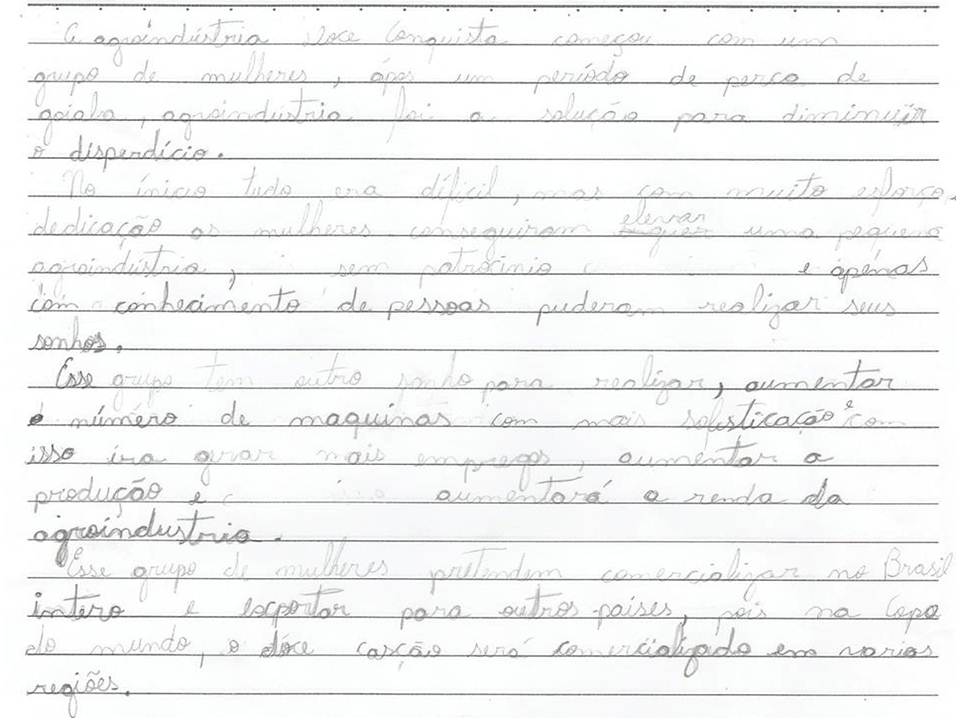 A agroindústria Doce Conquista começou com um
grupo de mulheres, ápos um período de perca de
goiaba, agroindústria foi a solução para diminuir
o disperdício.
No ínicio tudo era díficil, mas com muito esforço,
dedicação as mulheres conseguiram elevar uma pequena
agroindústria, sem patrocinio e ápenas
com conhecimento de pessoas puderam realizar seus
sonhos.
Esse grupo tem outro sonho para realizar, aumentar
o número de maquinas com mais sofisticação e com
isso ira gerar mais empregos, aumentar a
produção e aumentará a renda da
agroindustria.
Esse grupo de mulheres pretendem comercializar no Brasil
intero e exportar para outros países, pois na Copa
do mundo, o doce cascão será comercializado em varias
regiões.